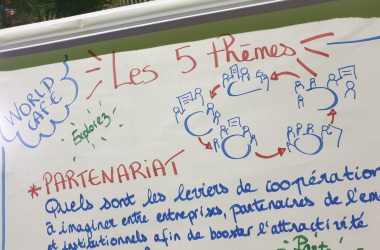 Les 5 thèmes
WORLD
CAFÉ
Explorez
*PARTENARIAT
Quels sont les leviers de coopération
à imaginer entre entreprises, partenaires de l'em
et institutionnels afin de booster l'attractivité